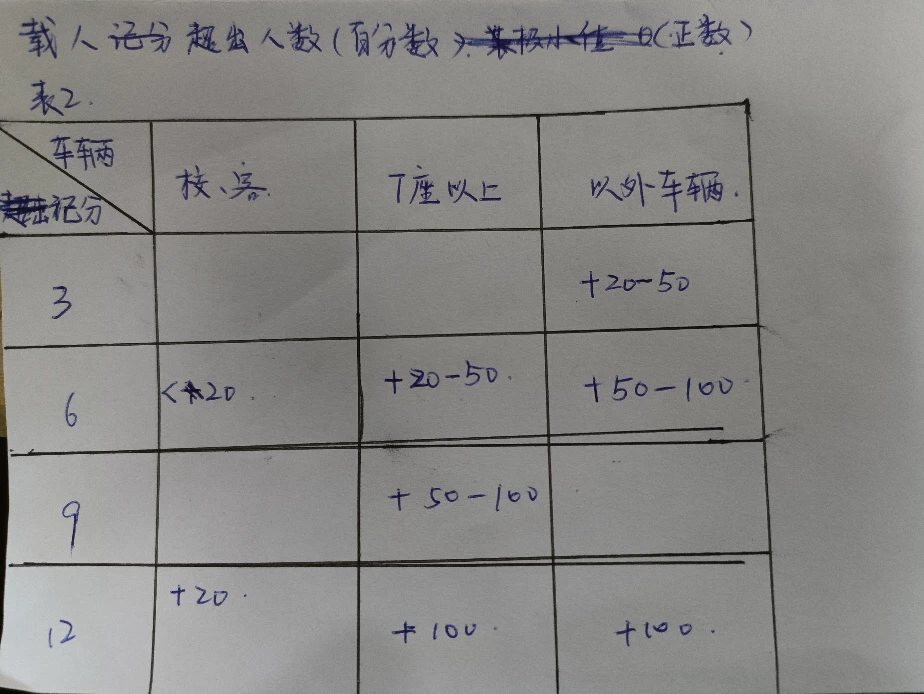 载人记分超出人数(百分数)(正数)
表2.
车辆
记分
校、客.
7座以上
以外车辆.
3
+20-50
6
<20.
+20-50.
+50-100
9
+50-100
12
+20.
+100.
+100.